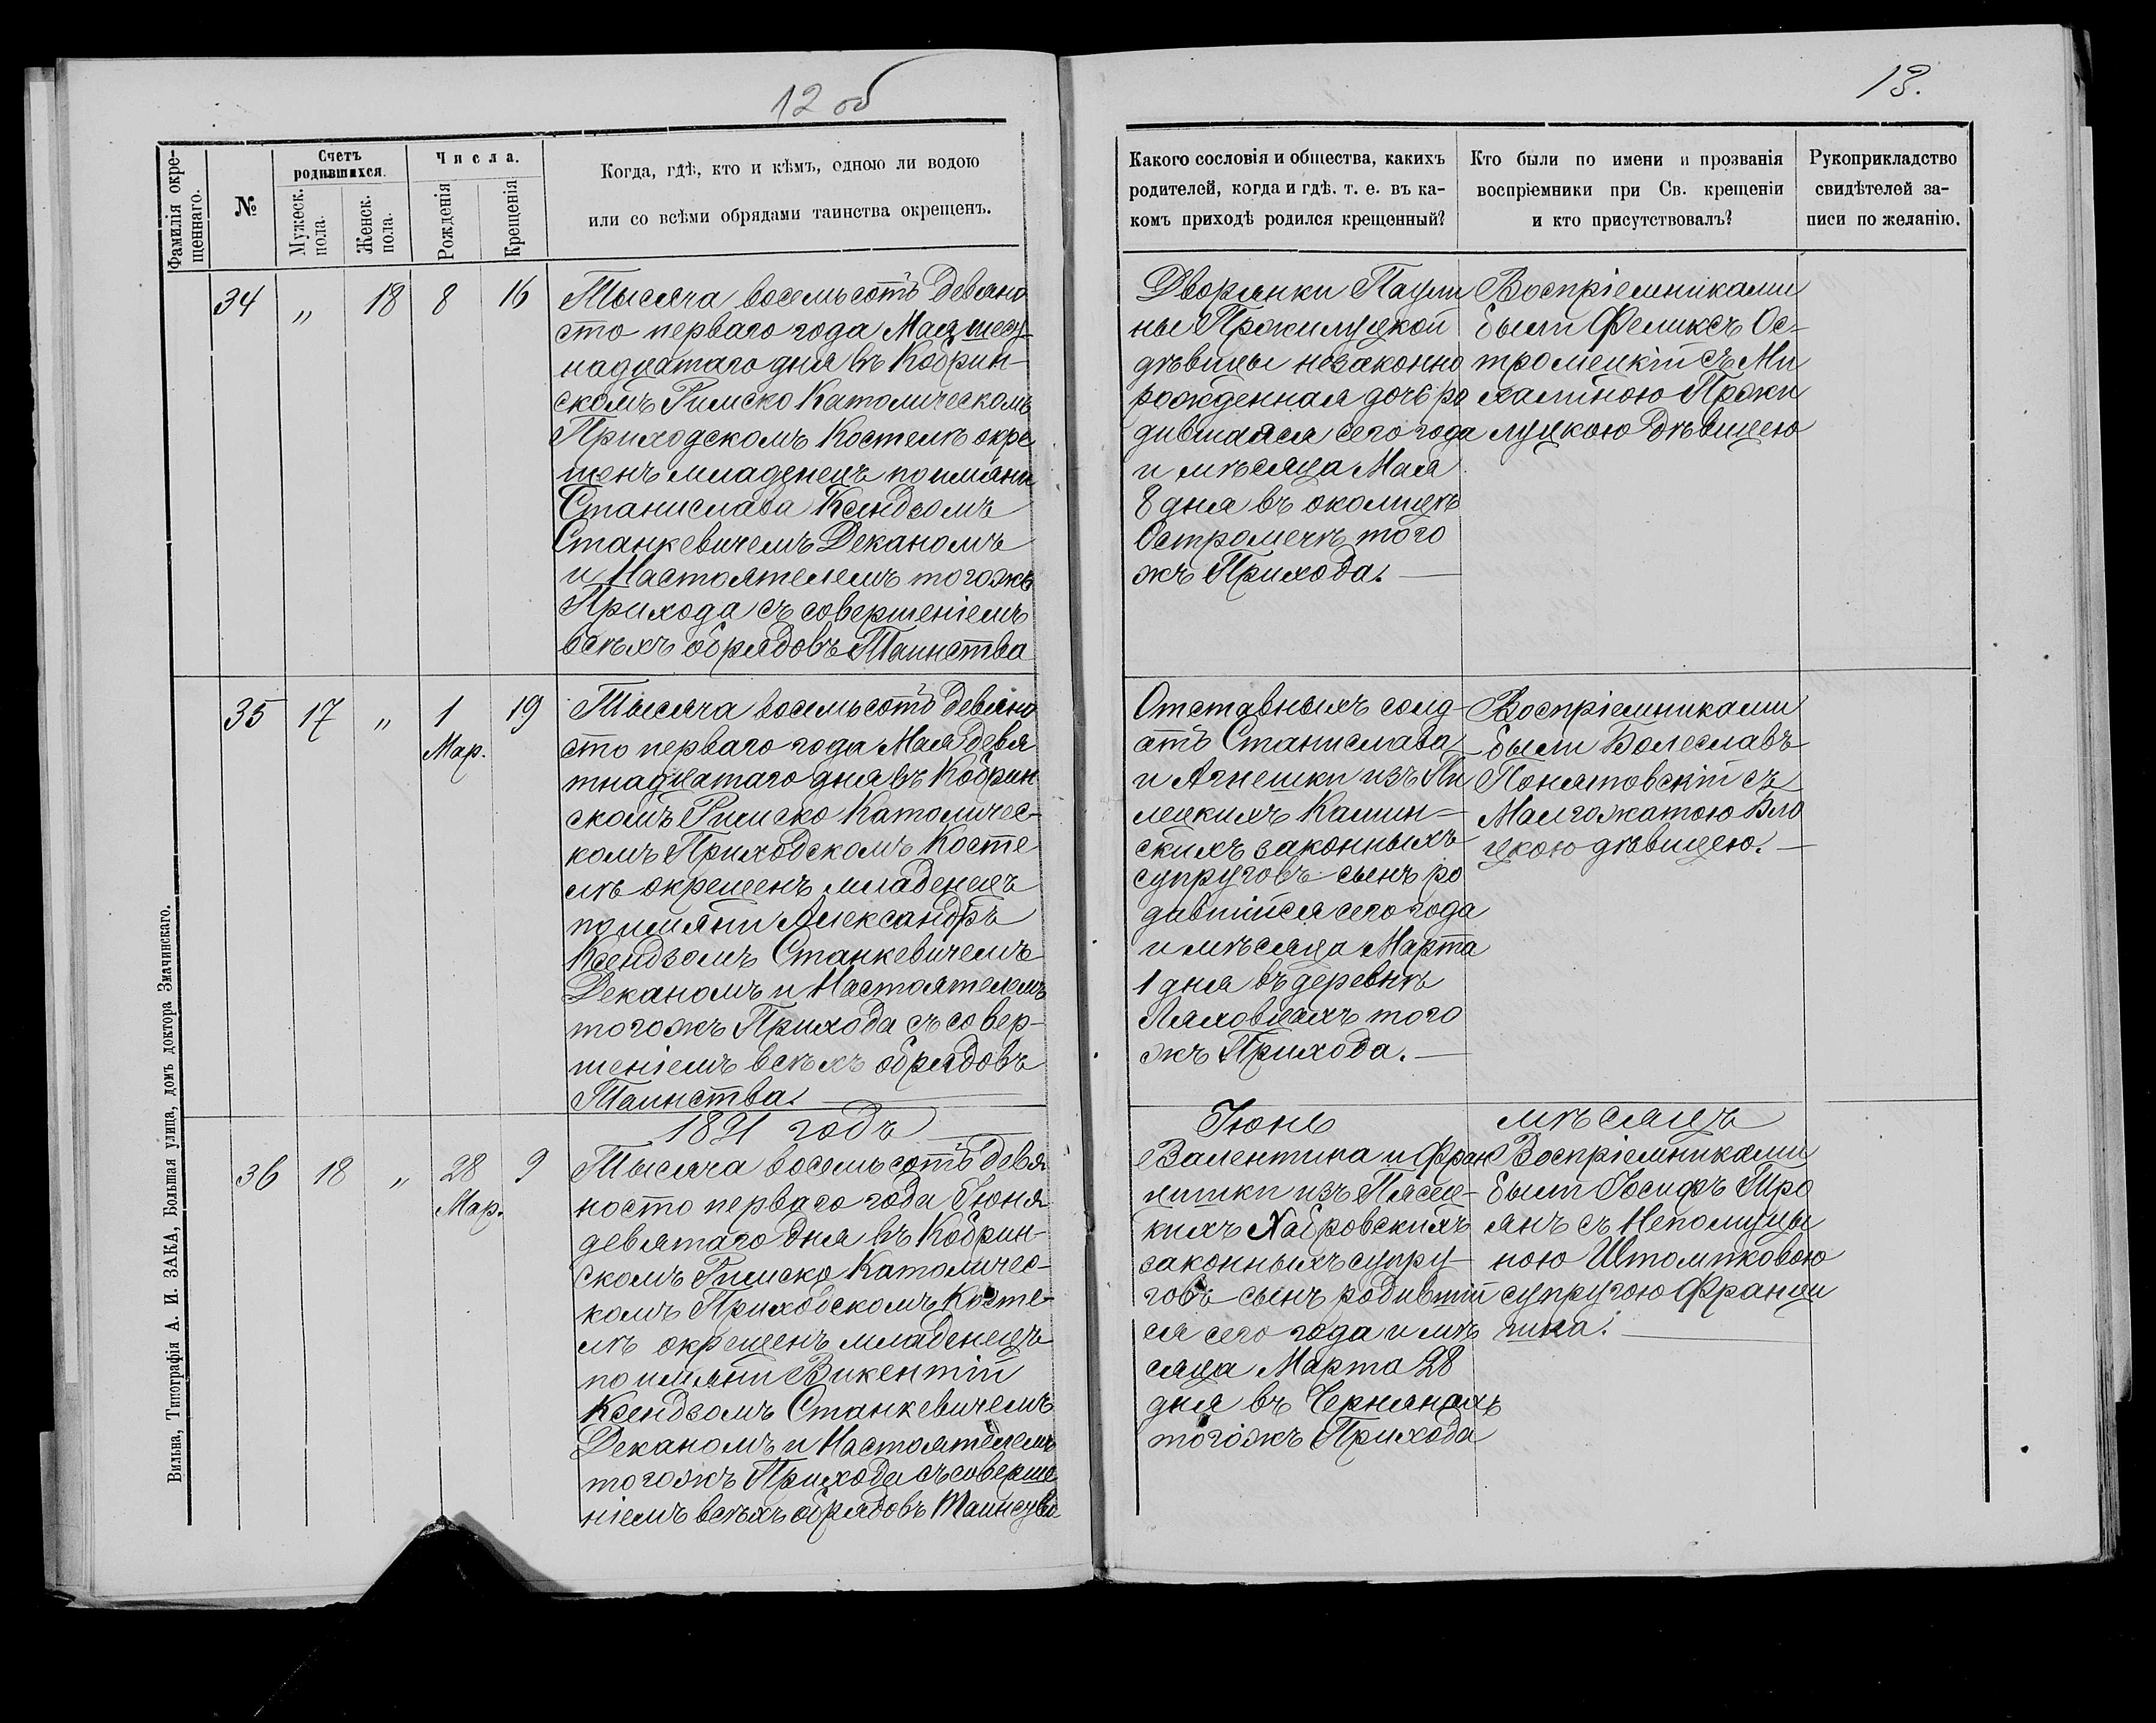 12 об
Фамилія окре-
щеннаго.
№
Счетъ
родившихся.
Мужеск.
пола.
Женск.
пола.
Числа.
Рожденія
Крещенія
Когда, гдѣ, кто и кѣмъ, одною ли водою
или со всѣми обрядами таинства окрещенъ.
34 „ 18 8 16
Тысяча восемьсотъ девяно
сто перваго года Мая шест-
надцатаго дня въ Кобрин-
скомъ Римско Католическомъ
Приходскомъ Костелѣ окре
щенъ младенецъ по имяни
Станислава Ксендзомъ
Станкевичемъ Деканомъ
и Настоятелемъ тогожъ
Прихода съ совершеніемъ
всѣхъ обрядовъ Таинства
35 17 „ 1 19
Мар.
Тысяча восемьсотъ девяно
сто перваго года Мая девя
тнадцатаго дня въ Кобрин
скомъ Римско Католичес-
комъ Приходскомъ Косте
лѣ окрещенъ младенецъ
по имяни Александръ
Ксендзомъ Станкевичемъ
Деканомъ и Настоятелемъ
тогожъ Прихода съ совер-
шеніемъ всѣхъ обрядовъ
Таинства.
1891 годъ
36 18 „ 28 9
Мар.
Тысяча восемьсотъ девя
носто перваго года Іюня
девятаго дня въ Кобрин-
скомъ Римско Католичес-
комъ Приходскомъ Косте-
лѣ окрещенъ младенецъ
по имяни Викентій
Ксендзомъ Станкевичемъ
Деканомъ и Настоятелемъ
тогожъ Прихода съ соверше
ніемъ всѣхъ обрядовъ Таинства
Вильна, Типографія А. И. ЗАКА, Большая улица, домъ доктора Змачинскаго.
13.
Какого сословія и общества, какихъ
родителей, когда и гдѣ. т. е. въ ка-
комъ приходѣ родился крещенный?
Кто были по имени и прозванія
воспріемники при Св. крещеніи
и кто присутствовалъ?
Рукоприкладство
свидѣтелей за-
писи по желанію.
Дворянки Паули
ны Пржилуцкой
дѣвицы незаконно
рожденная дочь ро
дившаяся сего года
и мѣсяца Мая
8 дня въ околицѣ
Остромечѣ того
жъ Прихода.
Воспріемниками
были Феликсъ Ос-
тромецкій съ Ми
халиною Пржи
луцкою Дѣвицею
Отставныхъ солд-
атъ Станислава
и Агнешки изъ Пи
лецкихъ Камин-
скихъ законныхъ
супруговъ сынъ ро
дившійся сего года
и мѣсяца Марта
1 дня въ деревнѣ
Ляховцахъ того
жъ Прихода.
Воспріемниками
были Болеславъ
Понятовскій съ
Малгожатою Вло
цкою дѣвицею.
Іюнь мѣсяцъ
Валентина и Фран
цишки изъ Пясец-
кихъ Хабровскихъ
законныхъ супру-
говъ сынъ родившій
ся сего года и мѣ
сяца Марта 28
дня въ Чернянахъ
тогожъ Прихода
Воспріемниками
были Іосифъ Тро
янъ съ Непомуцы
ною Штомпковою
супругою Франци
шка.